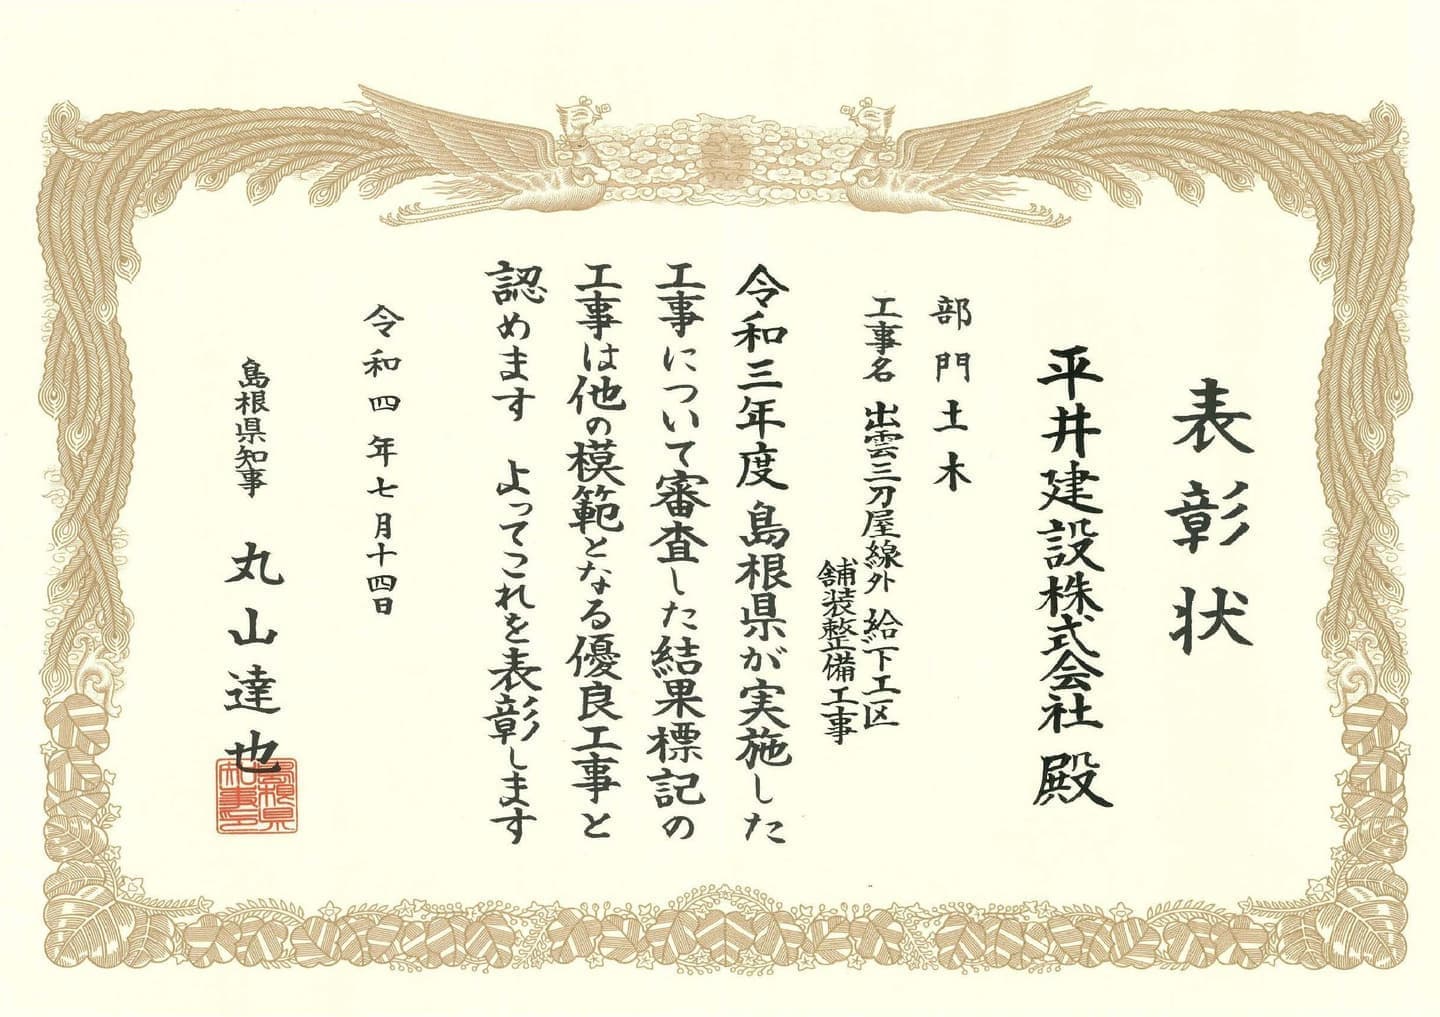 表彰状
平井建設株式会社 殿
部門 土木
工事名 出雲三刀屋線外 給下工区
舗装整備工事
令和三年度島根県が実施した
工事について審査した結果標記の
工事は他の模範となる優良工事と
認めます よってこれを表彰します
令和四年七月十四日
島根県知事 丸山達也
島根県
知事印